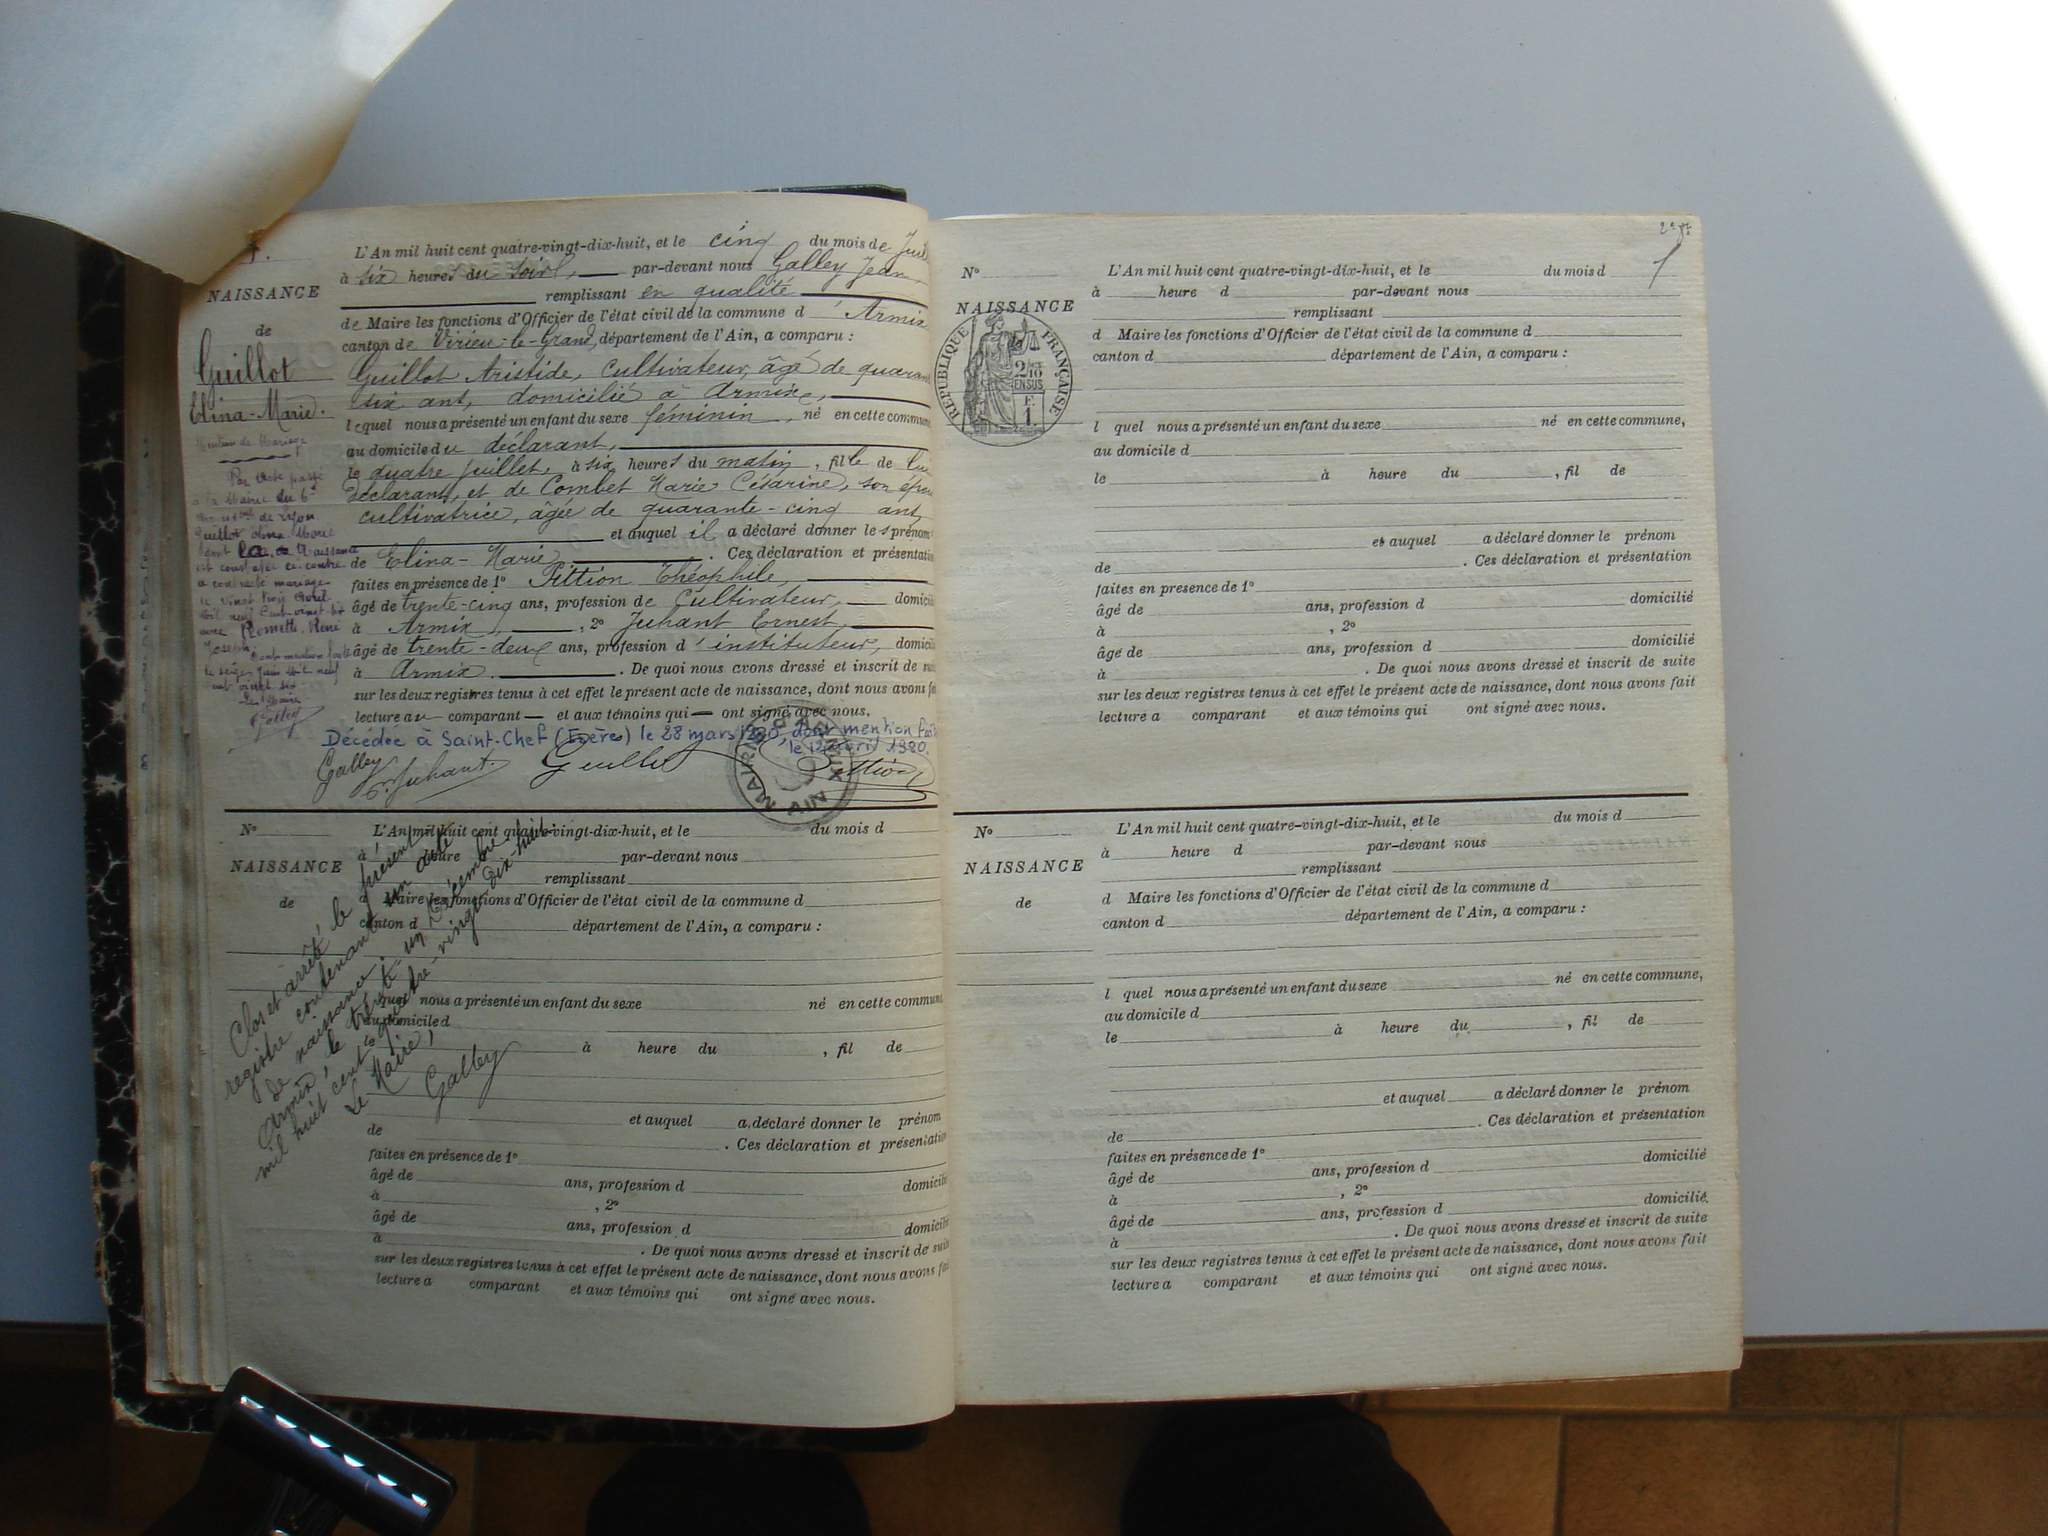 NAISSANCE
de
Guillot
Elina-Marie.
Mention de Mariage
Par acte passé
à la Mairie du 6e
de Lyon
Guillot Elina Marie
dont l'acte de Naissance
est constatée ci-contre
a contracté mariage
le vingt trois Avril
mil neuf cent vingt six
avec Romette René
Joseph
Dont mention faite
le seize Juin mil neuf
cent vingt six
Le Maire
Galley
L'An mil huit cent quatre-vingt-dix-huit, et le cinq du mois de Juil
à six heures du soir, par-devant nous Galley Jean,
remplissant en qualité
de Maire les fonctions d'Officier de l'état civil de la commune d'Armix
canton de Virieu-le-Grand, département de l'Ain, a comparu :
Guillot Aristide, cultivateur, âgé de quarante
six ans, domicilié à Armix,
lequel nous a présenté un enfant du sexe féminin, né en cette commune
au domicile du déclarant,
le quatre juillet, à six heures du matin, fille de lui
déclarant, et de Combet Marie Césarine, son épouse
cultivatrice, âgée de quarante-cinq ans
et auquel il a déclaré donner les prénoms
de Elina-Marie. Ces déclaration et présentation
faites en présence de 1° Pittion Théophile,
âgé de trente-cinq ans, profession de Cultivateur, domicilié
à Armix, 2° Juhant Ernest,
âgé de trente-deux ans, profession d'instituteur, domicilié
à Armix. De quoi nous avons dressé et inscrit de suite
sur les deux registres tenus à cet effet le présent acte de naissance, dont nous avons fait
lecture au comparant et aux témoins qui ont signé avec nous.
Décédée à Saint-Chef (Isère) le 28 mars 1980, dont mention faite
le 12 avril 1980.
Galley E. Juhant. Guillot Pittion
MAIRIE D'ARMIX
AIN
N° L'An mil huit cent quatre-vingt-dix-huit, et le du mois d
NAISSANCE à heure par-devant nous
remplissant
de d Maire les fonctions d'Officier de l'état civil de la commune d
canton d département de l'Ain, a comparu :
l quel nous a présenté un enfant du sexe né en cette commune
au domicile d
le à heure du , fil de
et auquel a déclaré donner le prénom
de . Ces déclaration et présentation
faites en présence de 1°
âgé de ans, profession d domicilié
à , 2°
âgé de ans, profession d domicilié
à . De quoi nous avons dressé et inscrit de suite
sur les deux registres tenus à cet effet le présent acte de naissance, dont nous avons fait
lecture a comparant et aux témoins qui ont signé avec nous.
Clos et arrêté le présent
registre contenant un acte
de naissance.
Armix, le trente-un Décembre
mil huit cent quatre-vingt-dix-huit.
Le Maire,
Galley
N° L'An mil huit cent quatre-vingt-dix-huit, et le du mois d
NAISSANCE à heure d par-devant nous
remplissant
d Maire les fonctions d'Officier de l'état civil de la commune d
canton d département de l'Ain, a comparu :
RÉPUBLIQUE FRANÇAISE
2/10
EN SUS
F.
1
l quel nous a présenté un enfant du sexe né en cette commune,
au domicile d
le à heure du , fil de
et auquel a déclaré donner le prénom
de . Ces déclaration et présentation
faites en presence de 1°
âgé de ans, profession d domicilié
à , 2°
âgé de ans, profession d domicilié
à . De quoi nous avons dressé et inscrit de suite
sur les deux registres tenus à cet effet le présent acte de naissance, dont nous avons fait
lecture a comparant et aux témoins qui ont signé avec nous.
N° L'An mil huit cent quatre-vingt-dix-huit, et le du mois d
NAISSANCE à heure d par-devant nous
remplissant
de d Maire les fonctions d'Officier de l'état civil de la commune d
canton d département de l'Ain, a comparu :
l quel nous a présenté un enfant du sexe né en cette commune,
au domicile d
le à heure du , fil de
et auquel a déclaré donner le prénom
de . Ces déclaration et présentation
faites en présence de 1°
âgé de ans, profession d domicilié
à , 2°
âgé de ans, profession d domicilié
à . De quoi nous avons dressé et inscrit de suite
sur les deux registres tenus à cet effet le présent acte de naissance, dont nous avons fait
lecture a comparant et aux témoins qui ont signé avec nous.